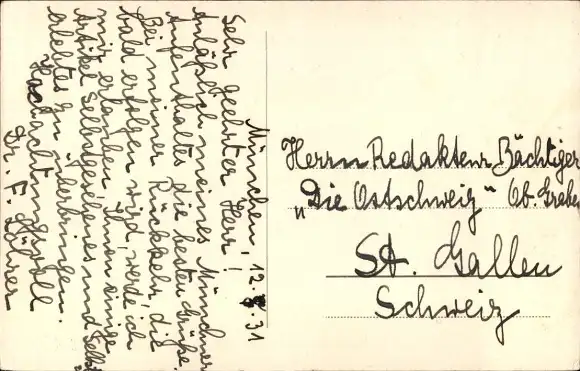 München, 12. 8. 31
Sehr geehrter Herr!
Anläßlich meines Münchner
Aufenthaltes die besten Grüße.
Bei meiner Rückkehr, die
bald erfolgen wird, werde ich
mir erlauben Ihnen einige
Artikel Selbstgesehenes und "Selbst
erlebtes zu überbringen.
Hochachtungsvoll
Dr. F.
Herrn Redakteur Bächtiger
"Die Ostschweiz" Ob. Graben
St. Gallen
Schweiz